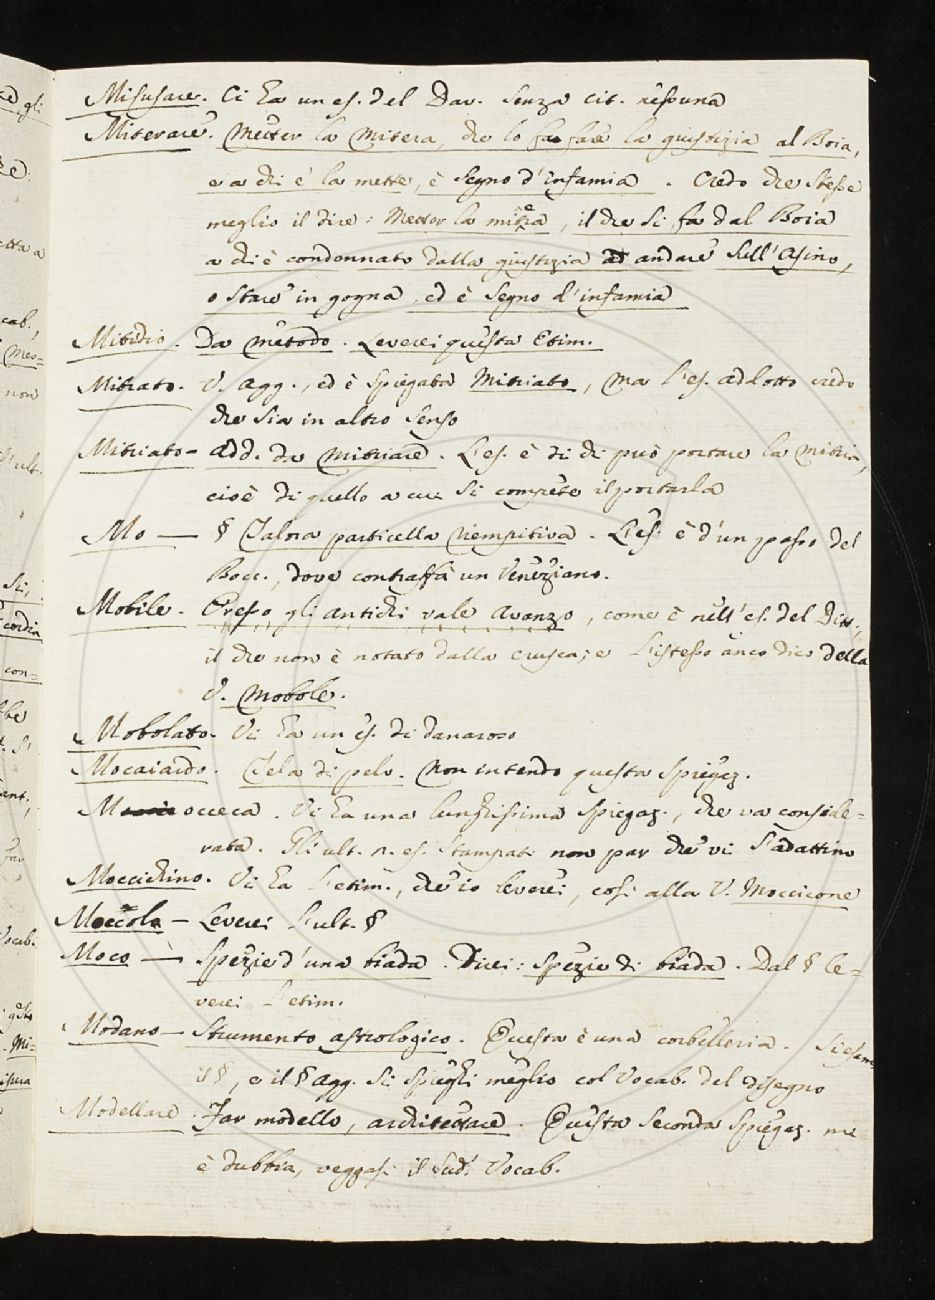 Misusare. Ci ha un es. del Dav. senza cit. nessuna
Miterare. Metter la mitera, che lo fa fare la giustizia al Boia,
e a chi è la mette, è segno d'infamia. Credo che stesse
meglio il dire: Metter la mitera, il che si fa dal Boia
a chi è condonnato dalla giustizia ad andare sull'asino,
o stare in gogna, ed è segno d'infamia
Mitidio. Da metodo. Leverei questa Etim.
Mitrato. V. agg., ed è spiegata Mitriato, ma l'es. addotto credo
che sia in altro senso
Mitriato - add. da Mitriare. L'es. è di chi può portare la mitria,
cioè di quello a cui si compete il portarla
Mo — § Talora particella riempitiva. L'es. è d'un passo del
Bocc., dove contraffà un Veneziano.
Mobile. Presso gli antichi vale avanzo, come è nell'es. del Ditt.,
il che non è notato dalla Crusca; e l'istesso anco dico della
V. Mobole.
Mobolato. Vi ha un es. di danaroso
Mocaiardo. Tela di pelo. Non intendo questa spiegaz.
Mocceca. Vi ha una lunghissima spiegaz., che va conside=
rata. Gli ult. n. es. stampati non par che vi s'adattino
Moccichino. Vi ha l'etim., che io leverei, così alla V. Moccicone
Moccolo - Leverei l'ult. §
Moco — Spezie d'una biada. Direi: spezie di biada. Dal § le=
verei l'etim.
Modano - Strumento astrologico. Questa è una corbelleria. Si esam.
il §, e il § agg. si spieghi meglio col Vocab. del disegno
Modellare. Far modello, architettare. Questa seconda spiegaz. me
è dubbia, veggasi il sud. Vocab.